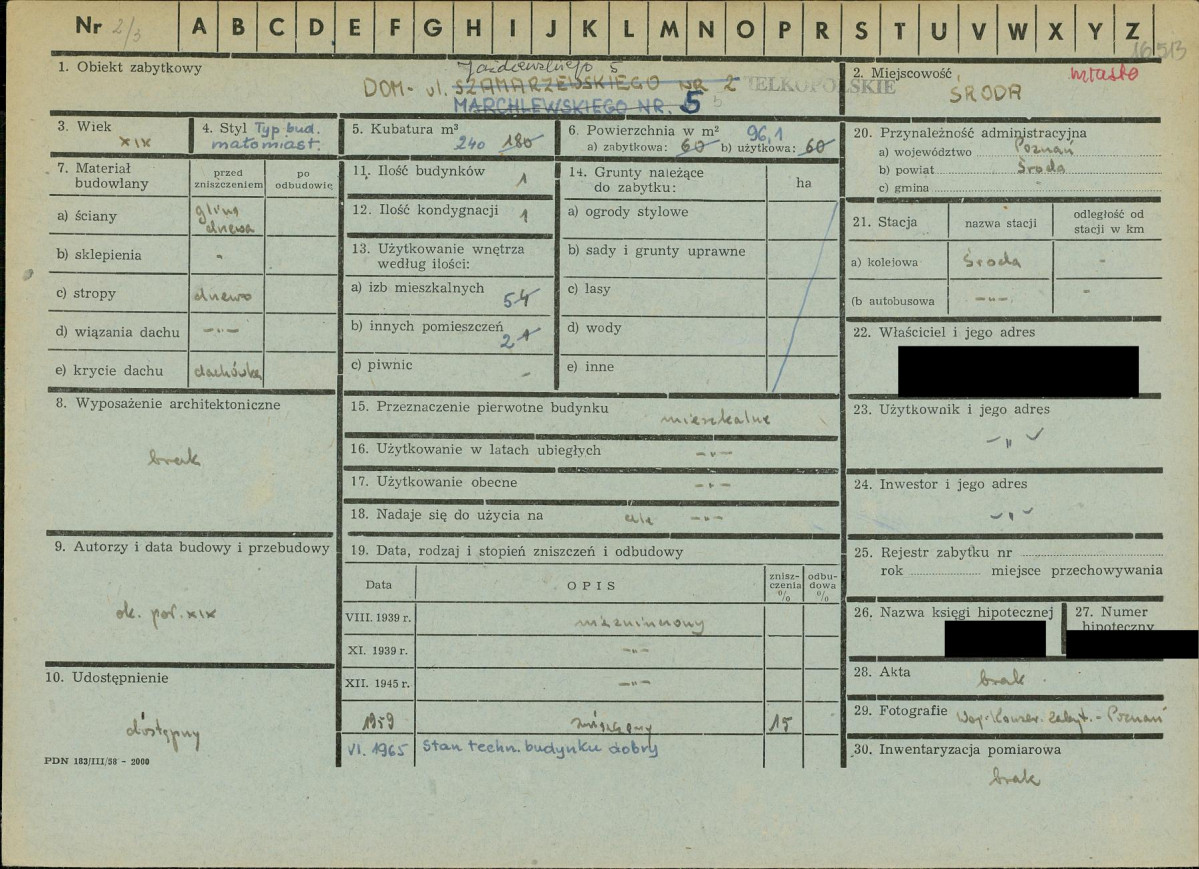 Nr 2/3 A B C D E F G H I J K L M N O P R S T U V W X Y Z
16513
1. Obiekt zabytkowy
5
DOM - ul. SZAMARZEWSKIEGO NR 2 WIELKOPOLSKIE
MARCHLEWSKIEGO NR. 5
2. Miejscowość miasto
ŚRODA
3. Wiek
XIX
4. Styl Typ bud.
małomiast.
5. Kubatura m³
240 180
6. Powierzchnia w m² 96,1
a) zabytkowa: 60 b) użytkowa: 60
7. Materiał budowlany
przed zniszczeniem
po odbudowie
a) ściany glina
drzewo
b) sklepienia -
c) stropy drewno
d) wiązania dachu —"—
e) krycie dachu dachówka
8. Wyposażenie architektoniczne
brak
9. Autorzy i data budowy i przebudowy
ok. poł. XIX
10. Udostępnienie
dostępny
PDN 183/III/58 - 2000
11. Ilość budynków 1
12. Ilość kondygnacji 1
13. Użytkowanie wnętrza
według ilości:
a) izb mieszkalnych 5 4
b) innych pomieszczeń 2 1
c) piwnic -
14. Grunty należące
do zabytku:
ha
a) ogrody stylowe
b) sady i grunty uprawne
c) lasy
d) wody
e) inne
15. Przeznaczenie pierwotne budynku
mieszkalne
16. Użytkowanie w latach ubiegłych —"—
17. Użytkowanie obecne —"—
18. Nadaje się do użycia na cele —"—
19. Data, rodzaj i stopień zniszczeń i odbudowy
Data
OPIS
znisz-
czenia
%
odbu-
dowa
%
VIII. 1939 r.
XI. 1939 r. —"—
XII. 1945 r. —"—
1959 15
VI. 1965 Stan techn. budynku dobry
20. Przynależność administracyjna
a) województwo Poznań
b) powiat Środa
c) gmina -
21. Stacja
nazwa stacji
odległość od
stacji w km
a) kolejowa Środa -
(b autobusowa —"— -
22. Właściciel i jego adres
23. Użytkownik i jego adres
—"—
24. Inwestor i jego adres
—"—
25. Rejestr zabytku nr
rok miejsce przechowywania
26. Nazwa księgi hipotecznej
27. Numer
hipoteczny
28. Akta
brak
29. Fotografie Woj. Konser. Zabyt. - Poznań
30. Inwentaryzacja pomiarowa
brak